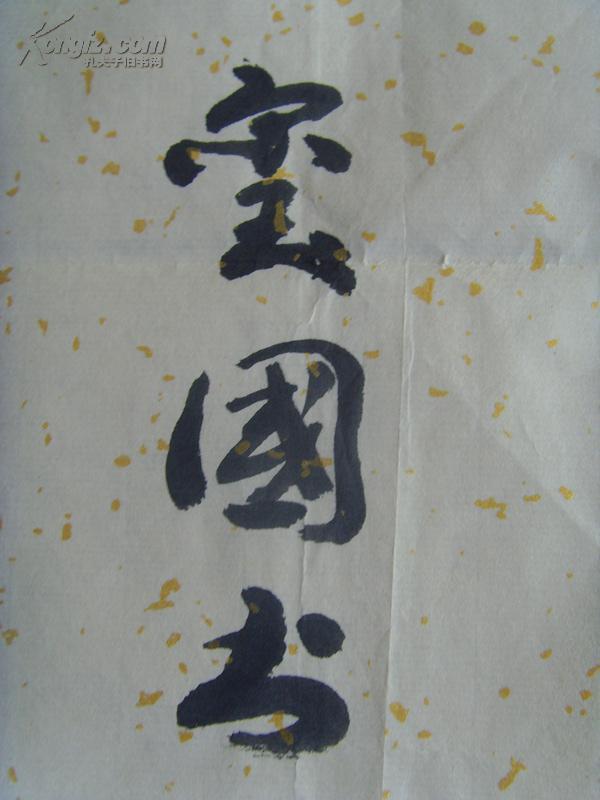 Kongfz.com
孔夫子旧书网
國书